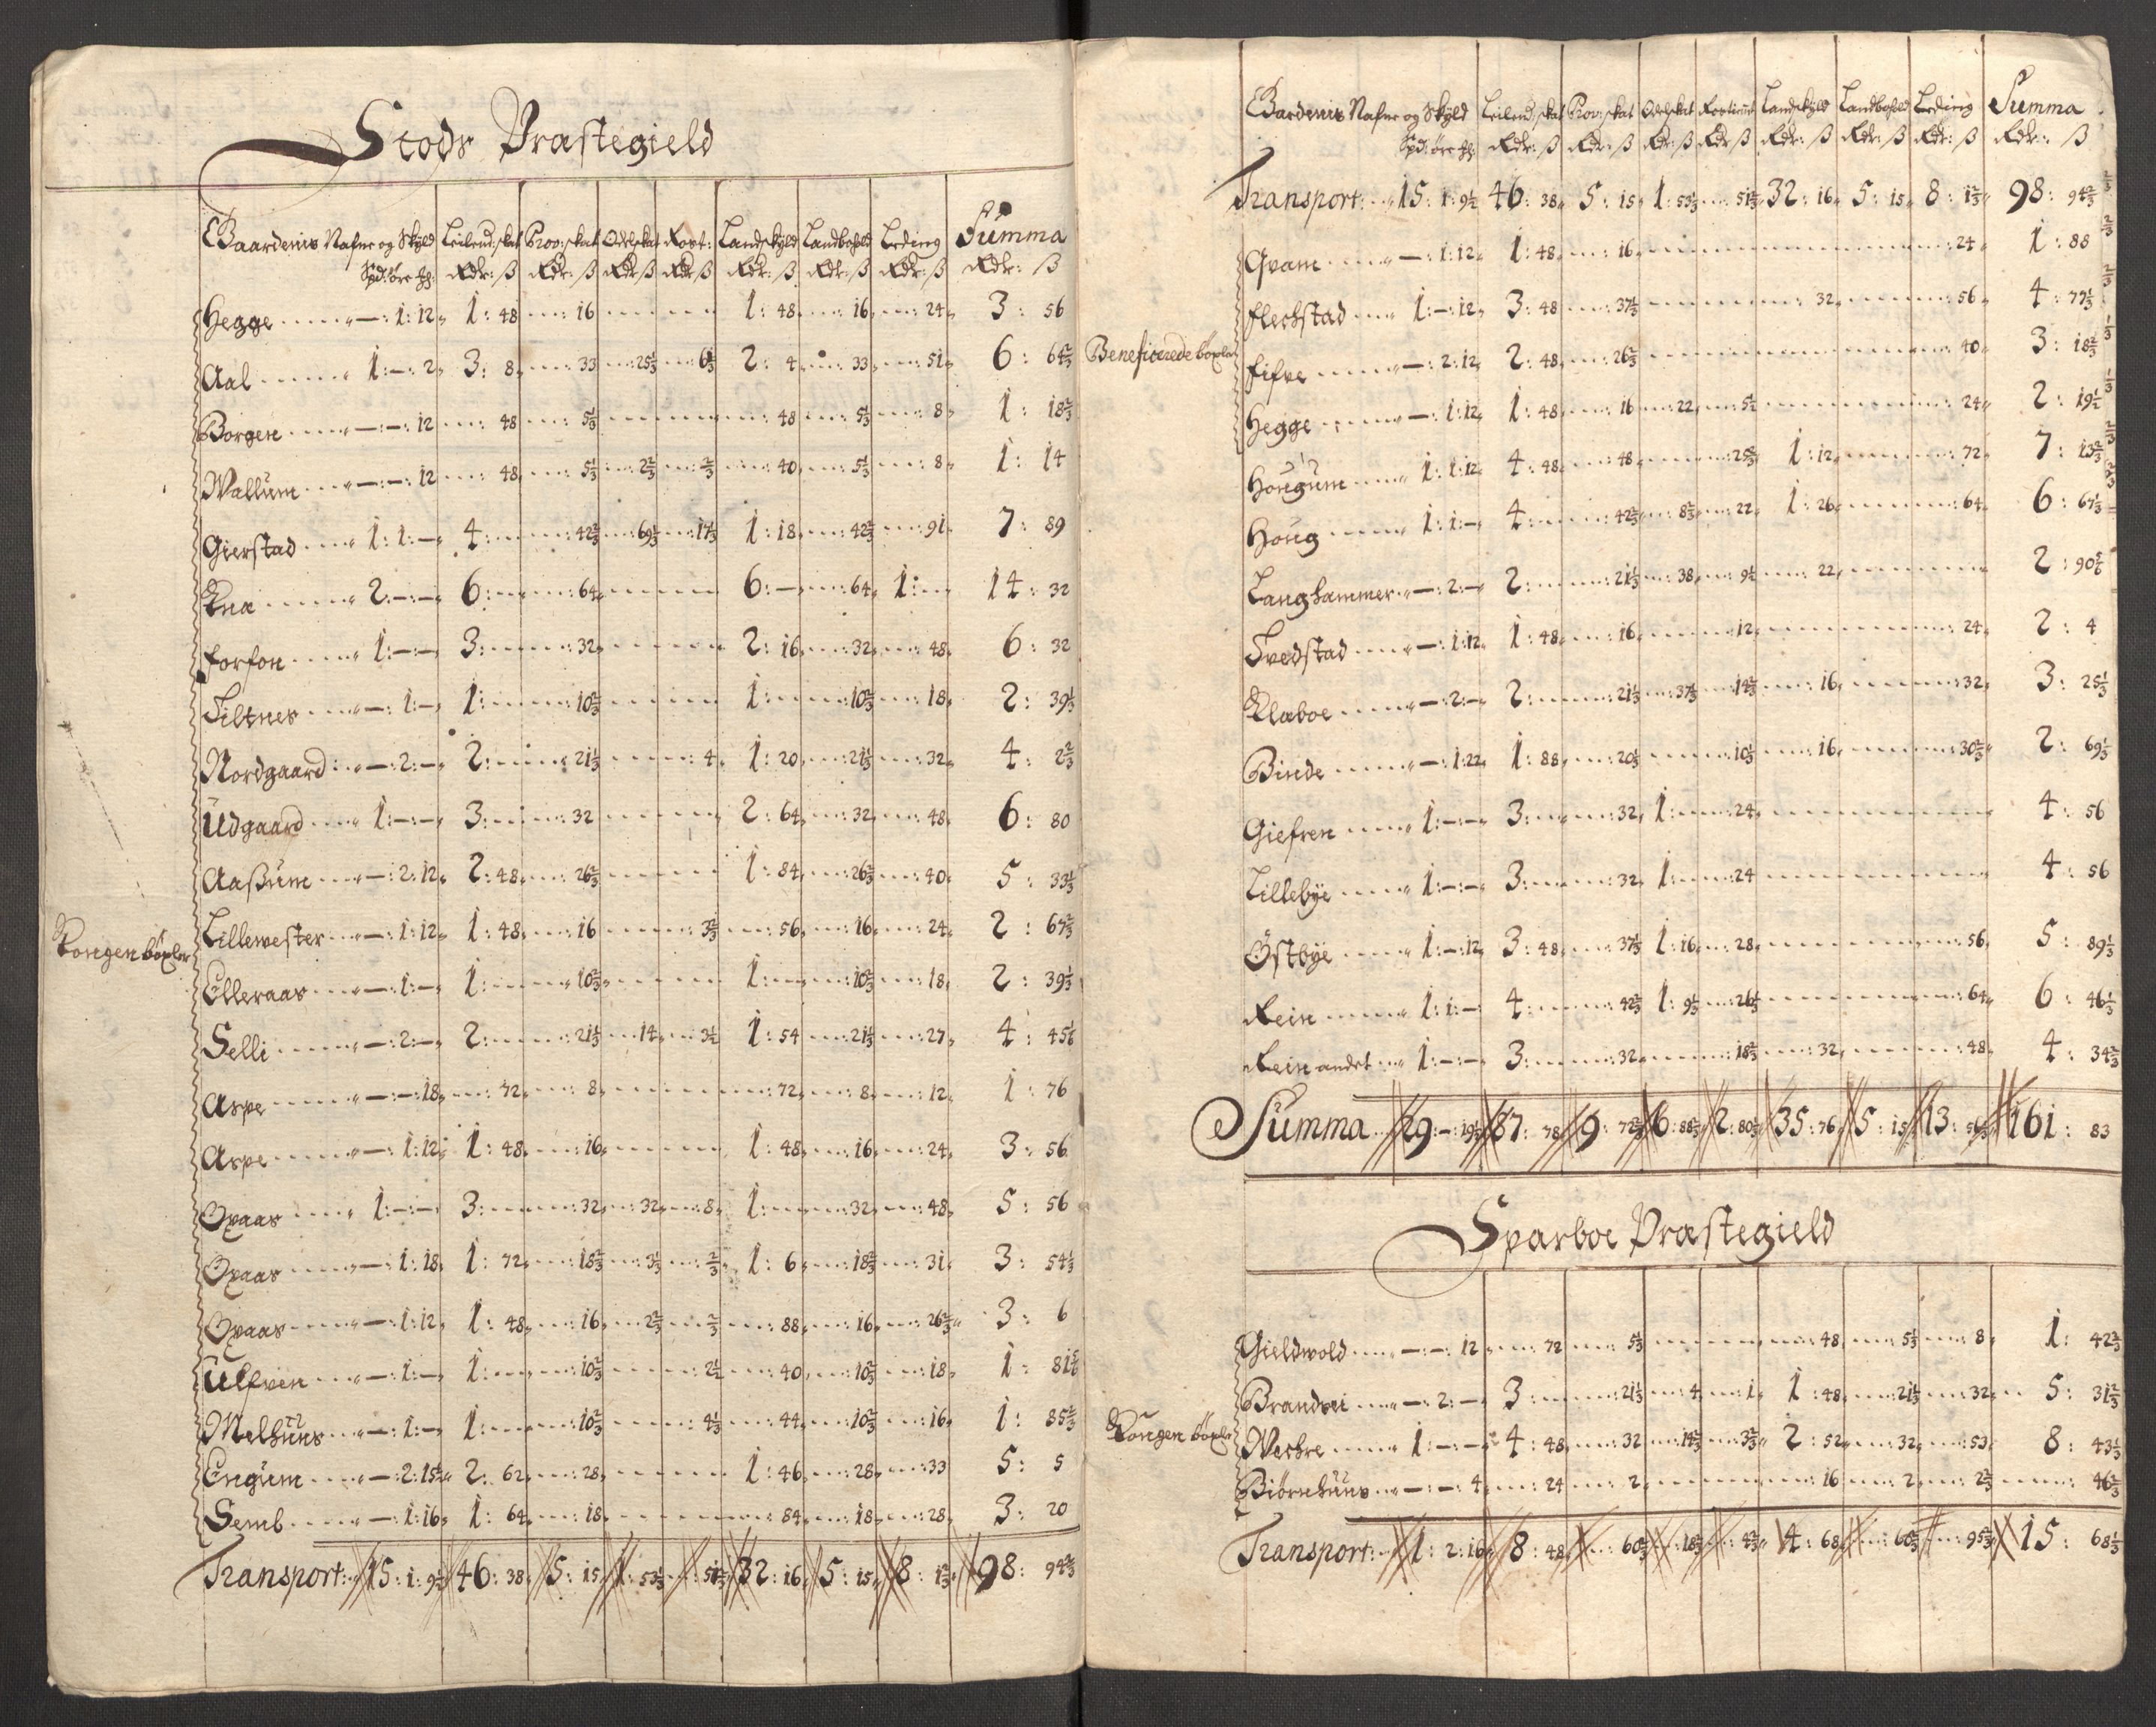 Stods Præstegield
Gaardenis Nafne og Skyld Leilend:skat Prov:skat Odelskat Rost: Landskyld Landbohold Leding Summa
Spd: öre Rdr: ß Rdr: ß Rdr ß Rdr ß Rdr: ß Rdr: ß Rdr: ß Rdr: ß
Hegge —:1:12 1:48 :16 1:48 :16 :24 3:56
Aal 1:—:2 3:8 :33 :25⅓ :6⅓ 2:4 :33 :51 6:64⅔
Borgen —:—:12 :48 :5⅓ :48 :5⅓ :8 1:18⅔
Wallum —:—:12 :48 :5⅓ :2⅔ :⅔ :40 :5⅓ :8 1:14
Gierstad 1:1:— 4: :42⅔ :69⅓ :17⅓ 1:18 :42⅔ :91 7:89
Kna 2:—:— 6: :64 6:— :64 1: 14:32
forfon 1:—:— 3: :32 2:16 :32 :48 6:32
Tiltnes —:1:— 1: :10⅔ 1: :10⅔ :18 2:39⅓
Nordgaard —:2:— 2: :21⅓ :4 1:20 :21⅓ :32 4:2⅔
Udgaard 1:—:— 3: :32 2:64 :32 :48 6:80
Aaßum —:2:12 2:48 :26⅔ 1:84 :26⅔ :40 5:33⅓
Kongen böxler
Lillewester —:1:12 1:48 :16 :3⅔ :56 :16 :24 2:67⅔
Elleraas —:1:— 1: :10⅔ 1: :10⅔ :18 2:39⅓
Selli —:2:— 2: :21⅓ :14 :3½ 1:54 :21⅓ :27 4:45⅙
Aspe —:—:18 :72 :8 :72 :8 :12 1:76
Aspe —:1:12 1:48 :16 1:48 :16 :24 3:56
Qvaas 1:—:— 3: :32 :32 :8 1: :32 :48 5:56
Qvaas —:1:18 1:72 :18⅔ :3⅓ :⅔ 1:6 :18⅔ :31 3:54⅓
Qvaas —:1:12 1:48 :16 :2⅔ :⅔ :88 :16 :26⅔ 3:6
Ulfven —:1:— 1: :10⅔ :2½ :40 :10⅔ :18 1:81⅚
Melhuus —:1:— 1: :10⅔ :4⅓ :44 :10⅔ :16 1:85⅔
Engum —:2:15½ 2:62 :28 1:46 :28 :33 5:5
Semb —:1:16 1:64 :18 :84 :18 :28 3:20
Transport: 15:1:9½ 46:38 5:15 1:53⅓ :51⅔ 32:16 5:15 8:1⅔ 98:94⅔
Gaardenis Nafne og Skyld Leilend:skat Prov:skat Odelskat Landskyld Landbohold Leding Summa
Spd: öre Rdr: ß Rdr: ß Rdr: ß Rdr ß Rdr: ß Rdr: ß Rdr: ß Rdr: ß
Transport: 15:1:9½ 46:38 5:15 1:53⅓ :51⅔ 32:16 5:15 8:1⅔ 98:94⅔
Qvam —:1:12 1:48 :16 :24 1:88
flechstad 1:—:12 3:48 :37⅓ :32 :56 4:77⅓
Beneficerede böxler
fifve —:2:12 2:48 :26⅔ :40 3:18⅔
Hegge —:1:12 1:48 :16 :22 :5½ :24 2:19½
Hougum 1:1:12 4:48 :48 :25⅔ 1:12 :72 7:13⅔
Houg 1:1:— 4: :42⅔ :8⅔ :22 1:26 :64 6:67⅓
Langhammer —:2:— 2: :21⅓ :38 :9½ :22 2:90⅚
Tvedstad —:1:12 1:48 :16 :12 :24 2:4
Klæboe —:2:— 2: :21⅓ :37⅓ :14⅔ :16 :32 3:25⅓
Binde —:1:22 1:88 :20⅓ :10⅓ :16 :30⅔ 2:69⅓
Giefren 1:—:— 3: :32 1: :24 4:56
Lillebÿe 1:—:— 3: :32 1: :24 4:56
Östbÿe 1:—:12 3:48 :37⅓ 1:16 :28 :56 5:89⅓
Rein 1:1:— 4: :42⅔ 1:9⅓ :26⅓ :64 6:46⅓
Rein andet 1:—:— 3: :32 :18⅔ :32 :48 4:34⅔
Summa 29:—:19½ 87:78 9:72⅔ 6:88⅔ 2:80⅓ 35:76 5:15 13:56⅓ 161:83
Sparboe Præstegield
Gieldwold —:—:12 :72 :5⅓ :48 :5⅓ :8 1:42⅔
Brandsei —:2:— 3: :21⅓ :4 :1 1:48 :21⅓ :32 5:31⅔
Kongen böxler
Wechre 1:—:— 4:48 :32 :14⅔ :3⅔ 2:52 :32 :53 8:43⅓
Biörnhuus —:—:4 :24 :2 :16 :2 :2⅔ :46⅔
Transport: 1:2:16 8:48 :60⅔ :18⅔ :4⅔ 4:68 :60⅔ :95⅔ 15:68⅓